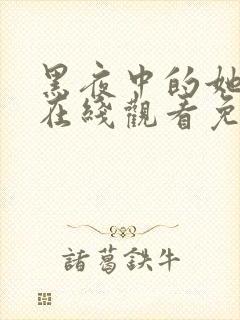 黑夜中的她
在綫觀看免
諸葛鉄牛